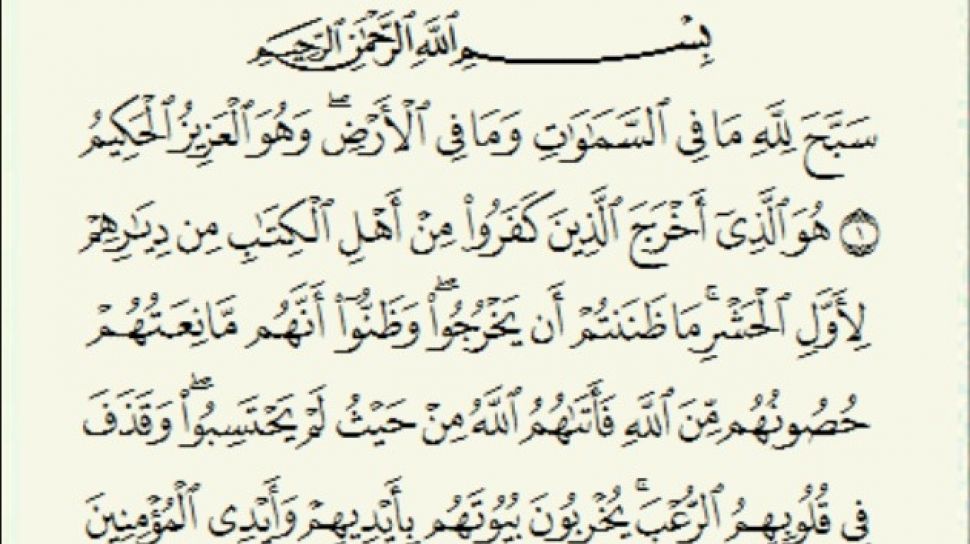 بِسْمِ اللَّهِ الرَّحْمَٰنِ الرَّحِيمِ
سَبَّحَ لِلَّهِ مَا فِي السَّمَٰوَٰتِ وَمَا فِي الْأَرْضِ ۖ وَهُوَ الْعَزِيزُ الْحَكِيمُ
١ هُوَ الَّذِيٓ أَخْرَجَ الَّذِينَ كَفَرُوا۟ مِنْ أَهْلِ الْكِتَٰبِ مِن دِيَٰرِهِمْ
لِأَوَّلِ الْحَشْرِ ۚ مَا ظَنَنتُمْ أَن يَخْرُجُوا۟ ۖ وَظَنُّوٓا۟ أَنَّهُم مَّانِعَتُهُمْ
حُصُونُهُم مِّنَ اللَّهِ فَأَتَىٰهُمُ اللَّهُ مِنْ حَيْثُ لَمْ يَحْتَسِبُوا۟ ۖ وَقَذَفَ
فِي قُلُوبِهِمُ الرُّعْبَ ۚ يُخْرِبُونَ بُيُوتَهُم بِأَيْدِيهِمْ وَأَيْدِي الْمُؤْمِنِينَ